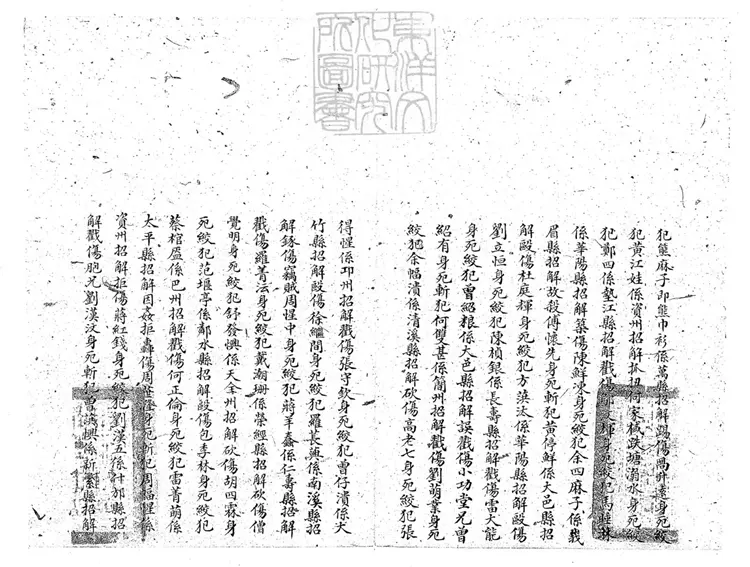 東洋文化研究所圖書
犯熊麻子即熊巾衫係萬縣招解踢傷馮升遠身死絞
犯黃江娃係資州招解扭何家棫跌塘溺水身死絞
犯鄭四係墊江縣招解戳傷輝身死絞犯馮桂林
係華陽縣招解築傷陳鮮凍身死絞犯余四麻子係峩
眉縣招解故殺傅懷先身死斬犯黃停鮮係大邑縣招
解毆傷杜庭輝身死絞犯方汰係華陽縣招解毆傷
劉立恒身死絞犯陳楨銀係長壽縣招解戳傷雷大能
身死絞犯曾紹粮係大邑縣招解誤戳傷小功堂兄曾
紹有身死斬犯何雙甚係簡州招解戳傷劉萌業身死
絞犯余幅潰係清溪縣招解砍傷高老七身死絞犯張
得惺係邛州招解戳傷張守欽身死絞犯曾仔潰係大
竹縣招解毆傷徐繼間身死絞犯羅長係南溪縣招
解傷竊賊周惺中身死絞犯蔣羊鱻係仁壽縣招解
戳傷羅菁法身死絞犯戴瀚珊係榮經縣招解砍傷僧
覺明身死絞犯舒發興係天全州招解砍傷胡四霖身
死絞犯范堰亭係鄰水縣招解毆傷包李林身死絞犯
蔡棺盧係巴州招解戳傷何正倫身死絞犯雷菁萌係
太平縣招解因姦拒轟傷周登陞身死斬犯周幅惺係
資州招解拒傷蔣紅錢身死絞犯劉漢五係什邡縣招
解戳傷胞兄劉漢汶身死斬犯曾興係新繁縣招解